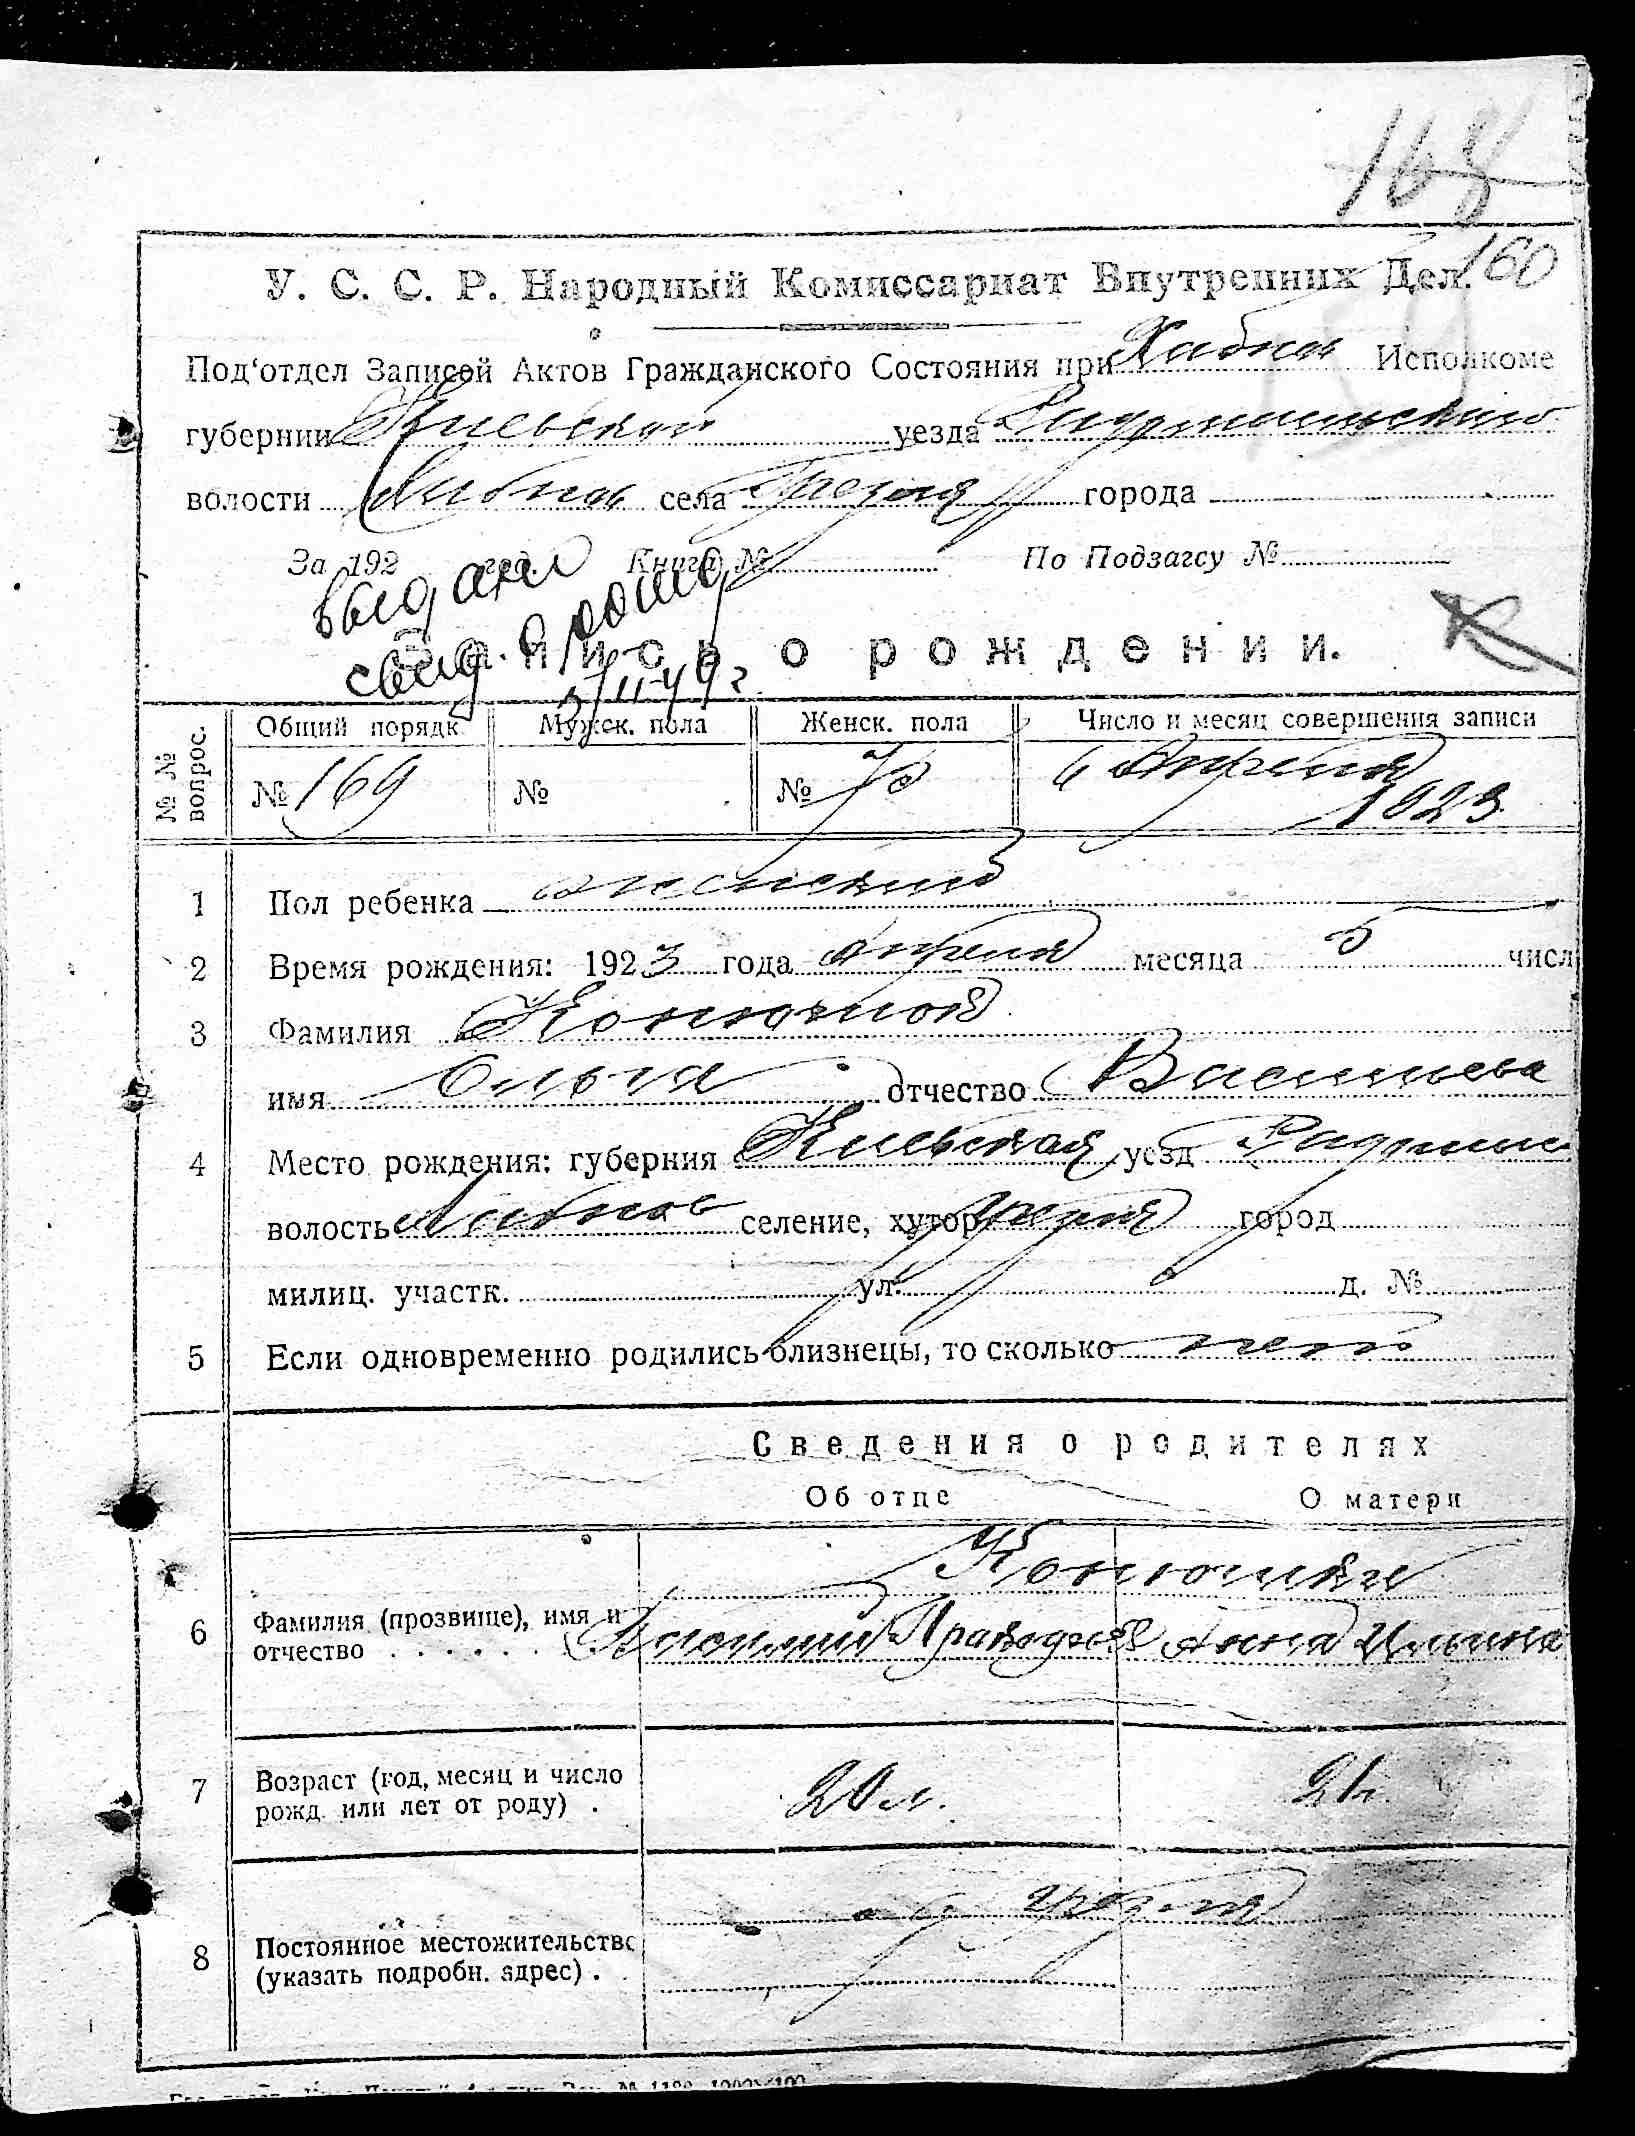 168
160
У. С. С. Р. Народный Комиссариат Внутренних Дел.
Под‘отдел Записей Актов Гражданского Состояния при Хабном Исполкоме
губернии Киевской уезда Радомысльского
волости Хабном села Грезля города
За 192 года. Книга № По Подзагсу №
выдано
свид. о рожд
Запись о рождении.
№№ вопрос. Общий порядк Мужск. пола Женск. пола Число и месяц совершения записи
№ 169 № № 70 6 Апреля
1923
1 Пол ребенка женский
2 Время рождения: 1923 года Апреля месяца 5 числ
3 Фамилия
имя Ольга отчество Васильева
4 Место рождения: губерния Киевская уезд Радомыс
волость Хабное селение, хутор Грезля город
милиц. участк. ул. д. №
5 Если одновременно родились близнецы, то сколько нет
Сведения о родителях
Об отце О матери
Конюшки
6 Фамилия (прозвище), имя и
отчество . . . . . . Анна Ильина
7 Возраст (год, месяц и число
рожд. или лет от роду) . 20 л. 21 л.
с Грезля
8 Постоянное местожительство
(указать подробн. адрес) .